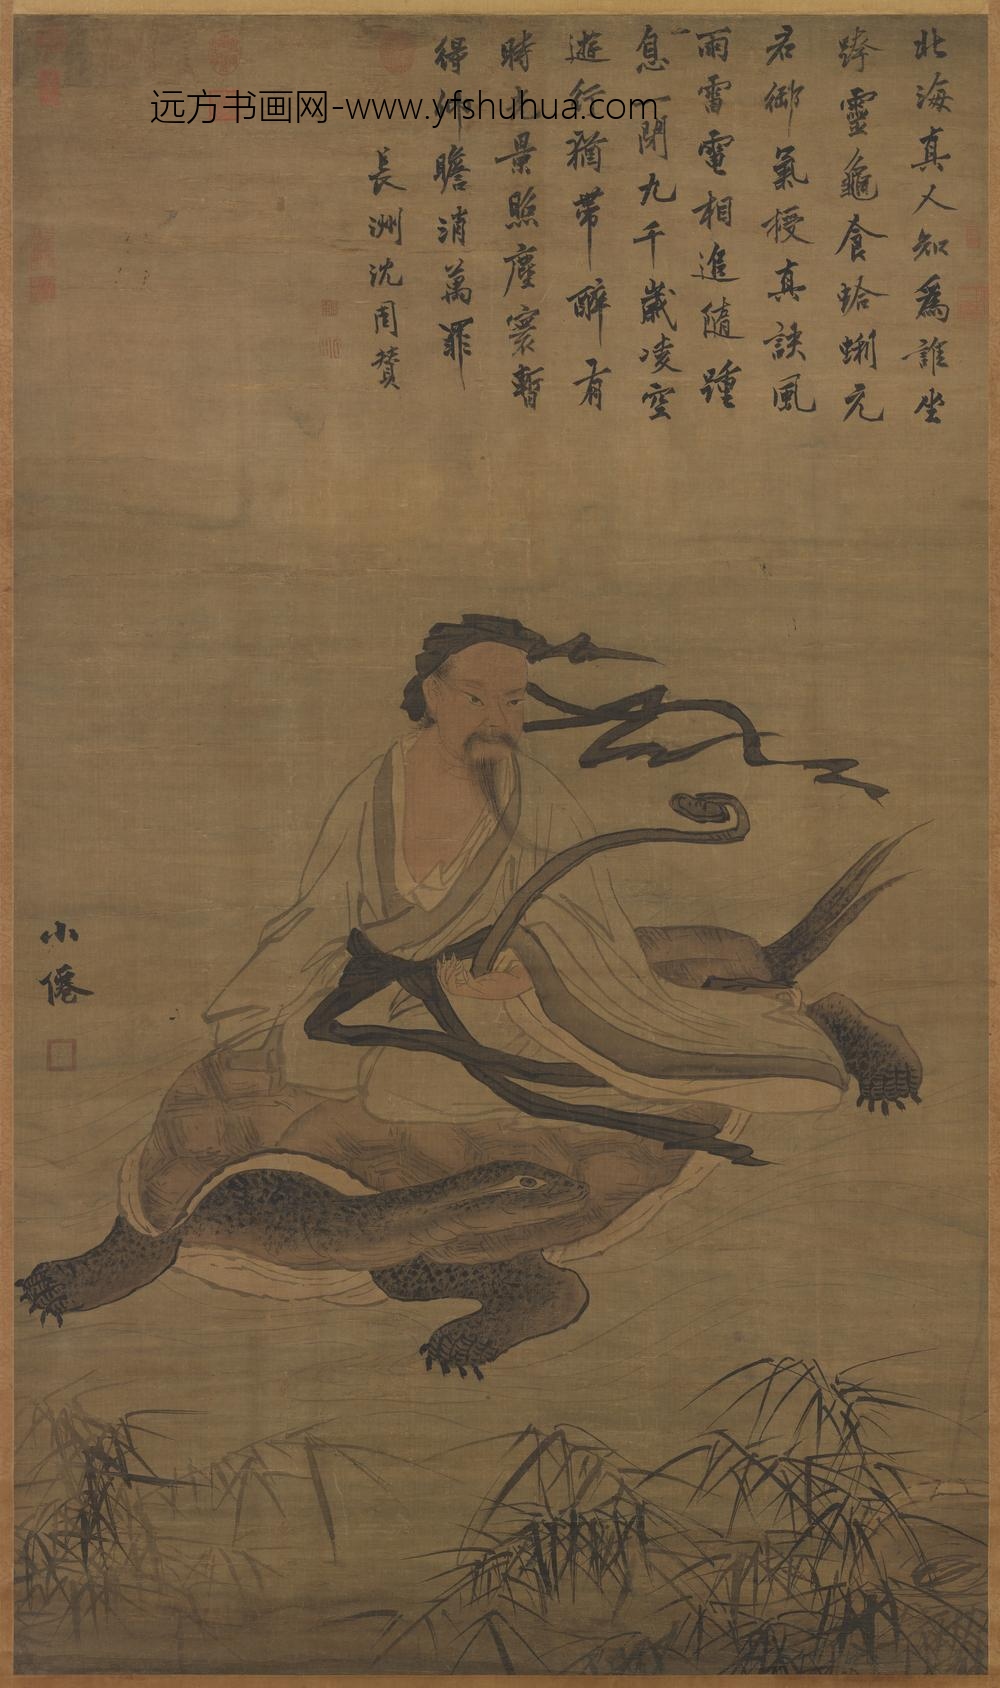 北海真人知爲誰坐
跨靈龜食蛤蜊元
君御氣授真訣風
雨雷電相追隨踵
息一閉九千歲凌空
遊行猶帶醉有
時光景照塵寰暫
得沛瞻消萬罪
長洲沈周贊
小僊
远方书画网-www.yfshuhua.com